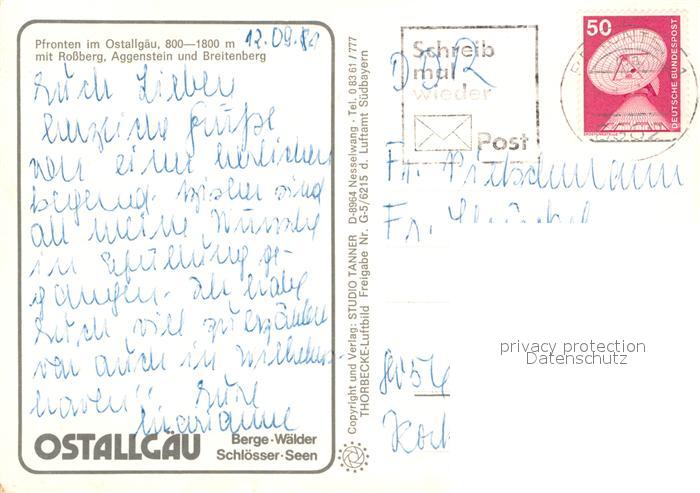 Pfronten im Ostallgäu, 800—1800 m
mit Roßberg, Aggenstein und Breitenberg
Euch Lieben
herzliche Grüße
von einer herrlichen
Gegend. Bisher sind
all meine Wünsche
in Erfüllung ge-
gangen. Ich habe
Euch viel zu erzählen
von auch in Wilhelms-
haven!! Eure
Marianne
OSTALLGÄU
Berge·Wälder
Schlösser·Seen
Copyright und Verlag: STUDIO TANNER D-8964 Nesselwang · Tel. 0 83 61 / 777
THORBECKE-Luftbild Freigabe Nr. G-5/6215 d. Luftamt Südbayern
DDR
Schreib
mal
wieder
Post
50
DEUTSCHE BUNDESPOST
Fr.
Fr.
privacy protection
Datenschutz